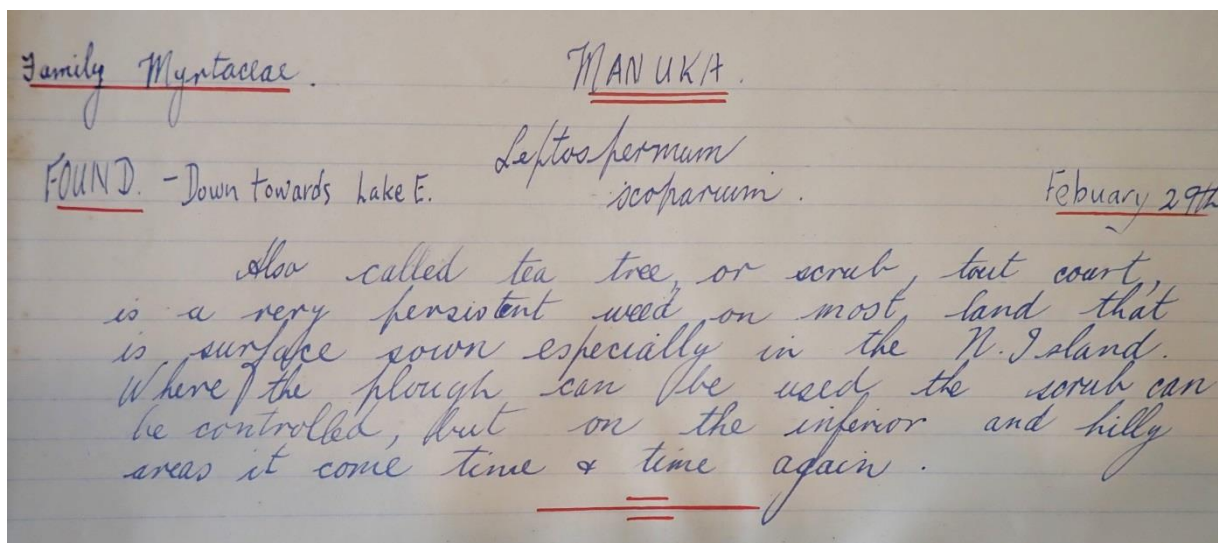 Family Myrtaceae.
MANUKA.
Leptospermum
scoparium.
FOUND. - Down towards Lake E.
Febuary 29th
Also called tea tree, or scrub, tout court,
is a very persistent weed on most land that
is surface sown especially in the N. Island.
Where the plough can be used the scrub can
be controlled, but on the inferior and hilly
areas it come time & time again.